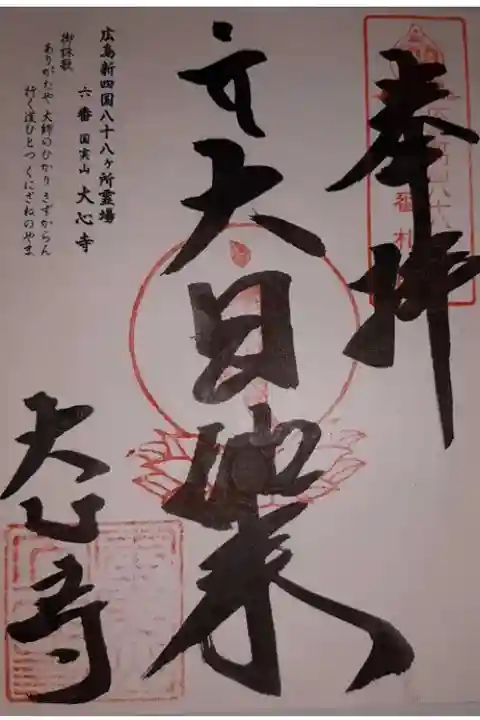 奉拝
大日如来
大心寺
広島新四国八十八ヶ所霊場
六番 国実山 大心寺
御詠歌
ありがたや 大師のひかり きずからん
行く道ひとつ くにざねのやま